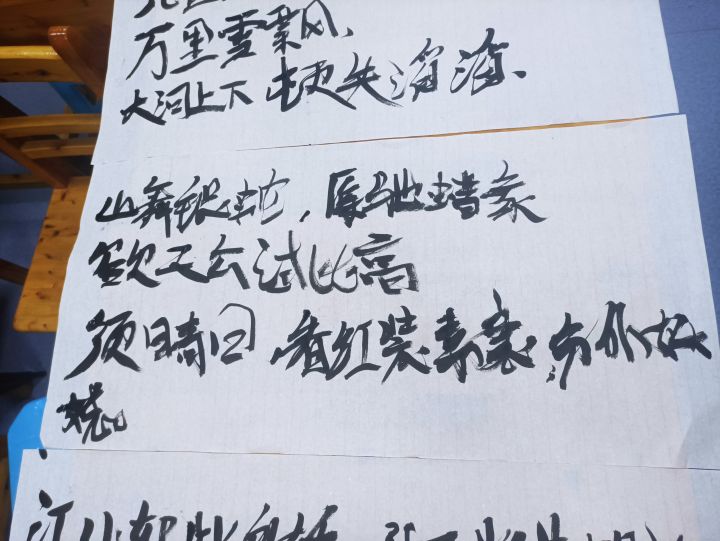 万里雪飘风、
大河上下顿失滔滔、
山舞银蛇,原驰蜡象
欲天公试比高
须晴日,看红装素裹,分外妖
娆
江山如此多娇